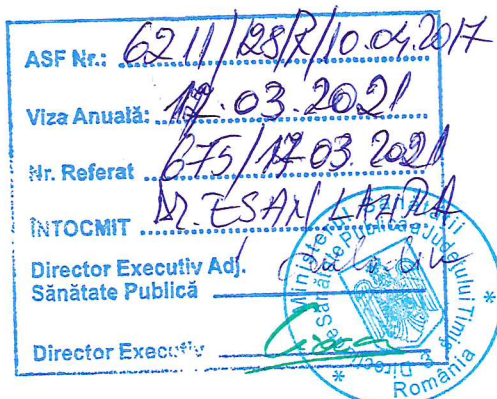 ASF Nr.: 6211/128/R/10.04.2017
Viza Anuală: 17.03.2021
Nr. Referat 675/17.03.2021
ÎNTOCMIT DR. ESAN LAURA
Director Executiv Adj.
Sănătate Publică
Director Executiv
Ministerul Sănătății
Direcția de Sănătate Publică a Județului Timiș
România
3